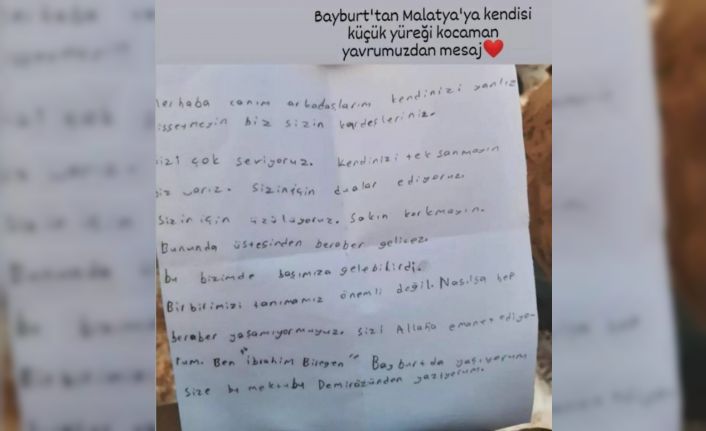 Bayburt'tan Malatya'ya kendisi
küçük yüreği kocaman
yavrumuzdan mesaj❤️
erhaba canım arkadaşlarım kendinizi yanlız
issetmeyin biz sizin kardeşleriniz.
izi çok seviyoruz. kendinizi tek sanmayın
iz varız. sizin için dualar ediyoruz
Sizin için üzülüyoruz. Sakın korkmayın.
Bununda üstesinden beraber gelicez.
bu bizimde başımıza gelebilirdi.
Birbirimizi tanımamız önemli değil. Nasılsa hep
beraber yaşamıyormuyuz. sizi Allaha emanet ediyo
rum. Ben "ibrahim Bilegen" Bayburtda yaşıyorum
size bu mektubu Demirözünden yazıyorum.